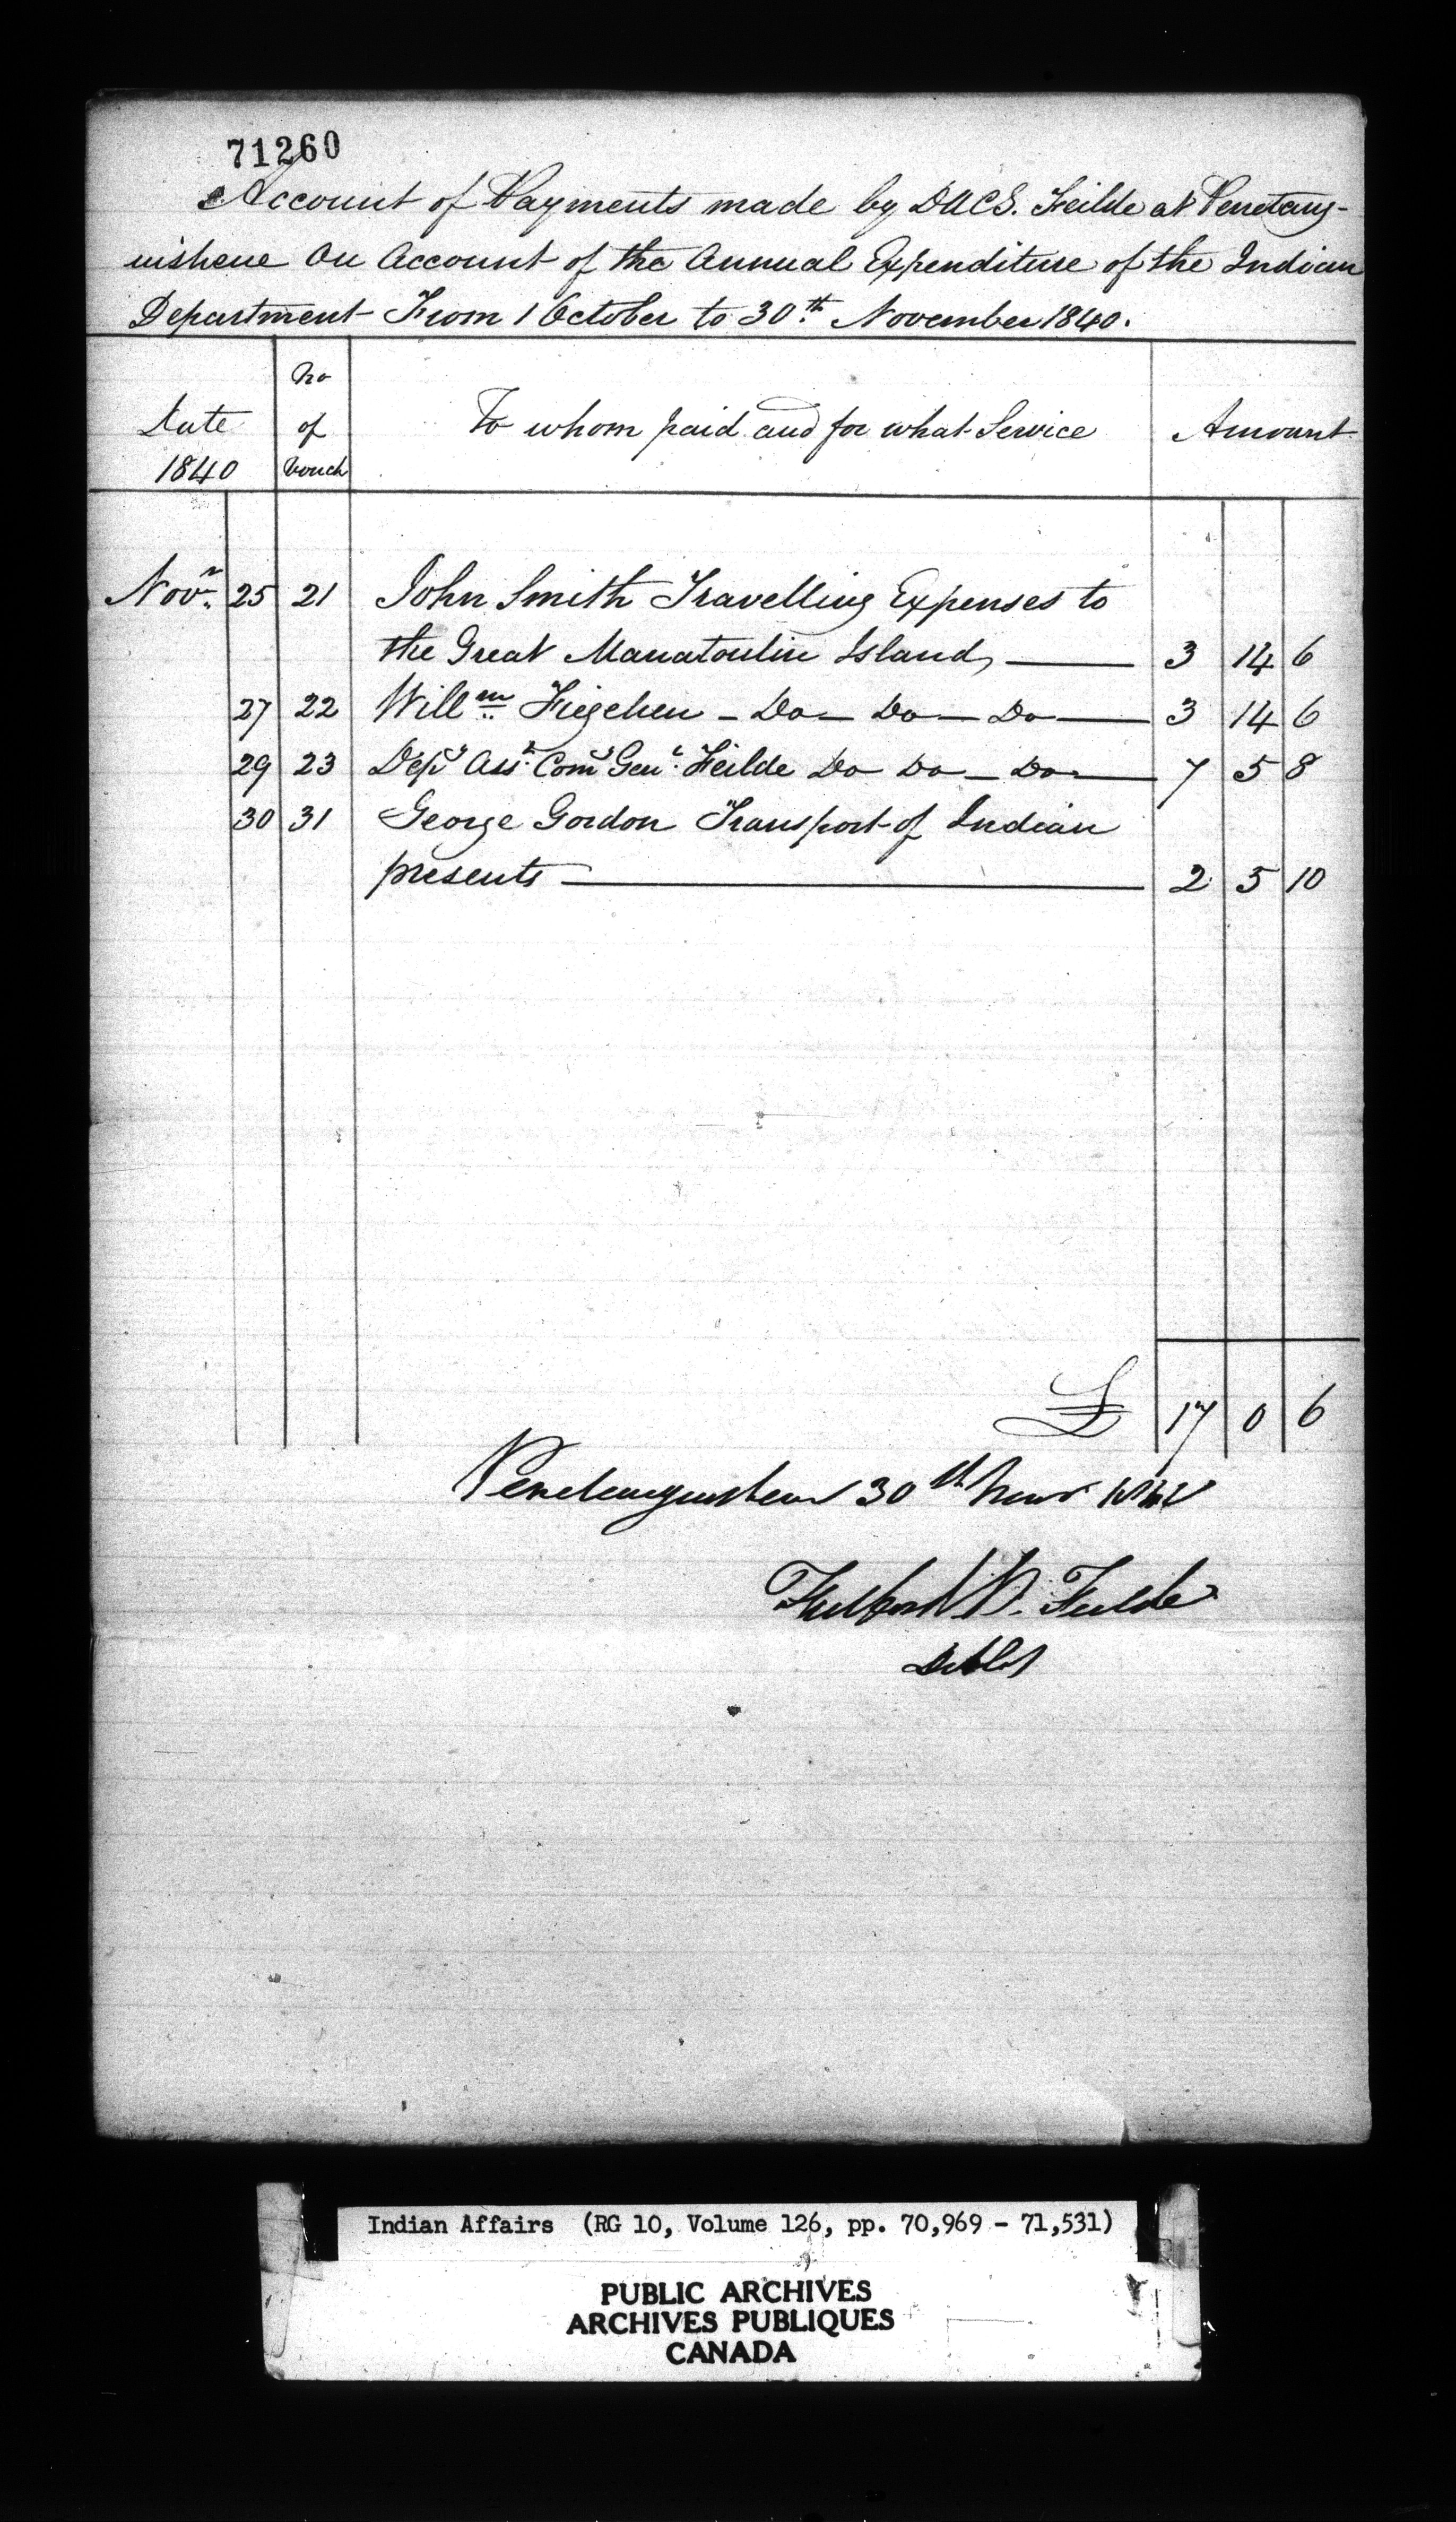 71260
Account of Payments made by DACG. Feilde at Penetang-
uishene On Account of the Annual Expenditure of the Indian
Department From 1 October to 30th November 1840.
Date 1840 | No of Vouch | To whom paid and for what Service | Amount
Novr. 25 21 John Smith Travelling Expenses to
the Great Manatoulin Island, 3 14 6
27 22 Willm Fiegehen - Do - Do - Do 3 14 6
29 23 Depy Asst. Comy Genl. Feilde Do Do - Do 7 5 8
30 31 George Gordon Transport of Indian
presents 2 5 10
£ 17 0 6
Penetanguishene 30th Novr 1840
B. Feilde
DACG
Indian Affairs (RG 10, Volume 126, pp. 70,969 - 71,531)
PUBLIC ARCHIVES
ARCHIVES PUBLIQUES
CANADA